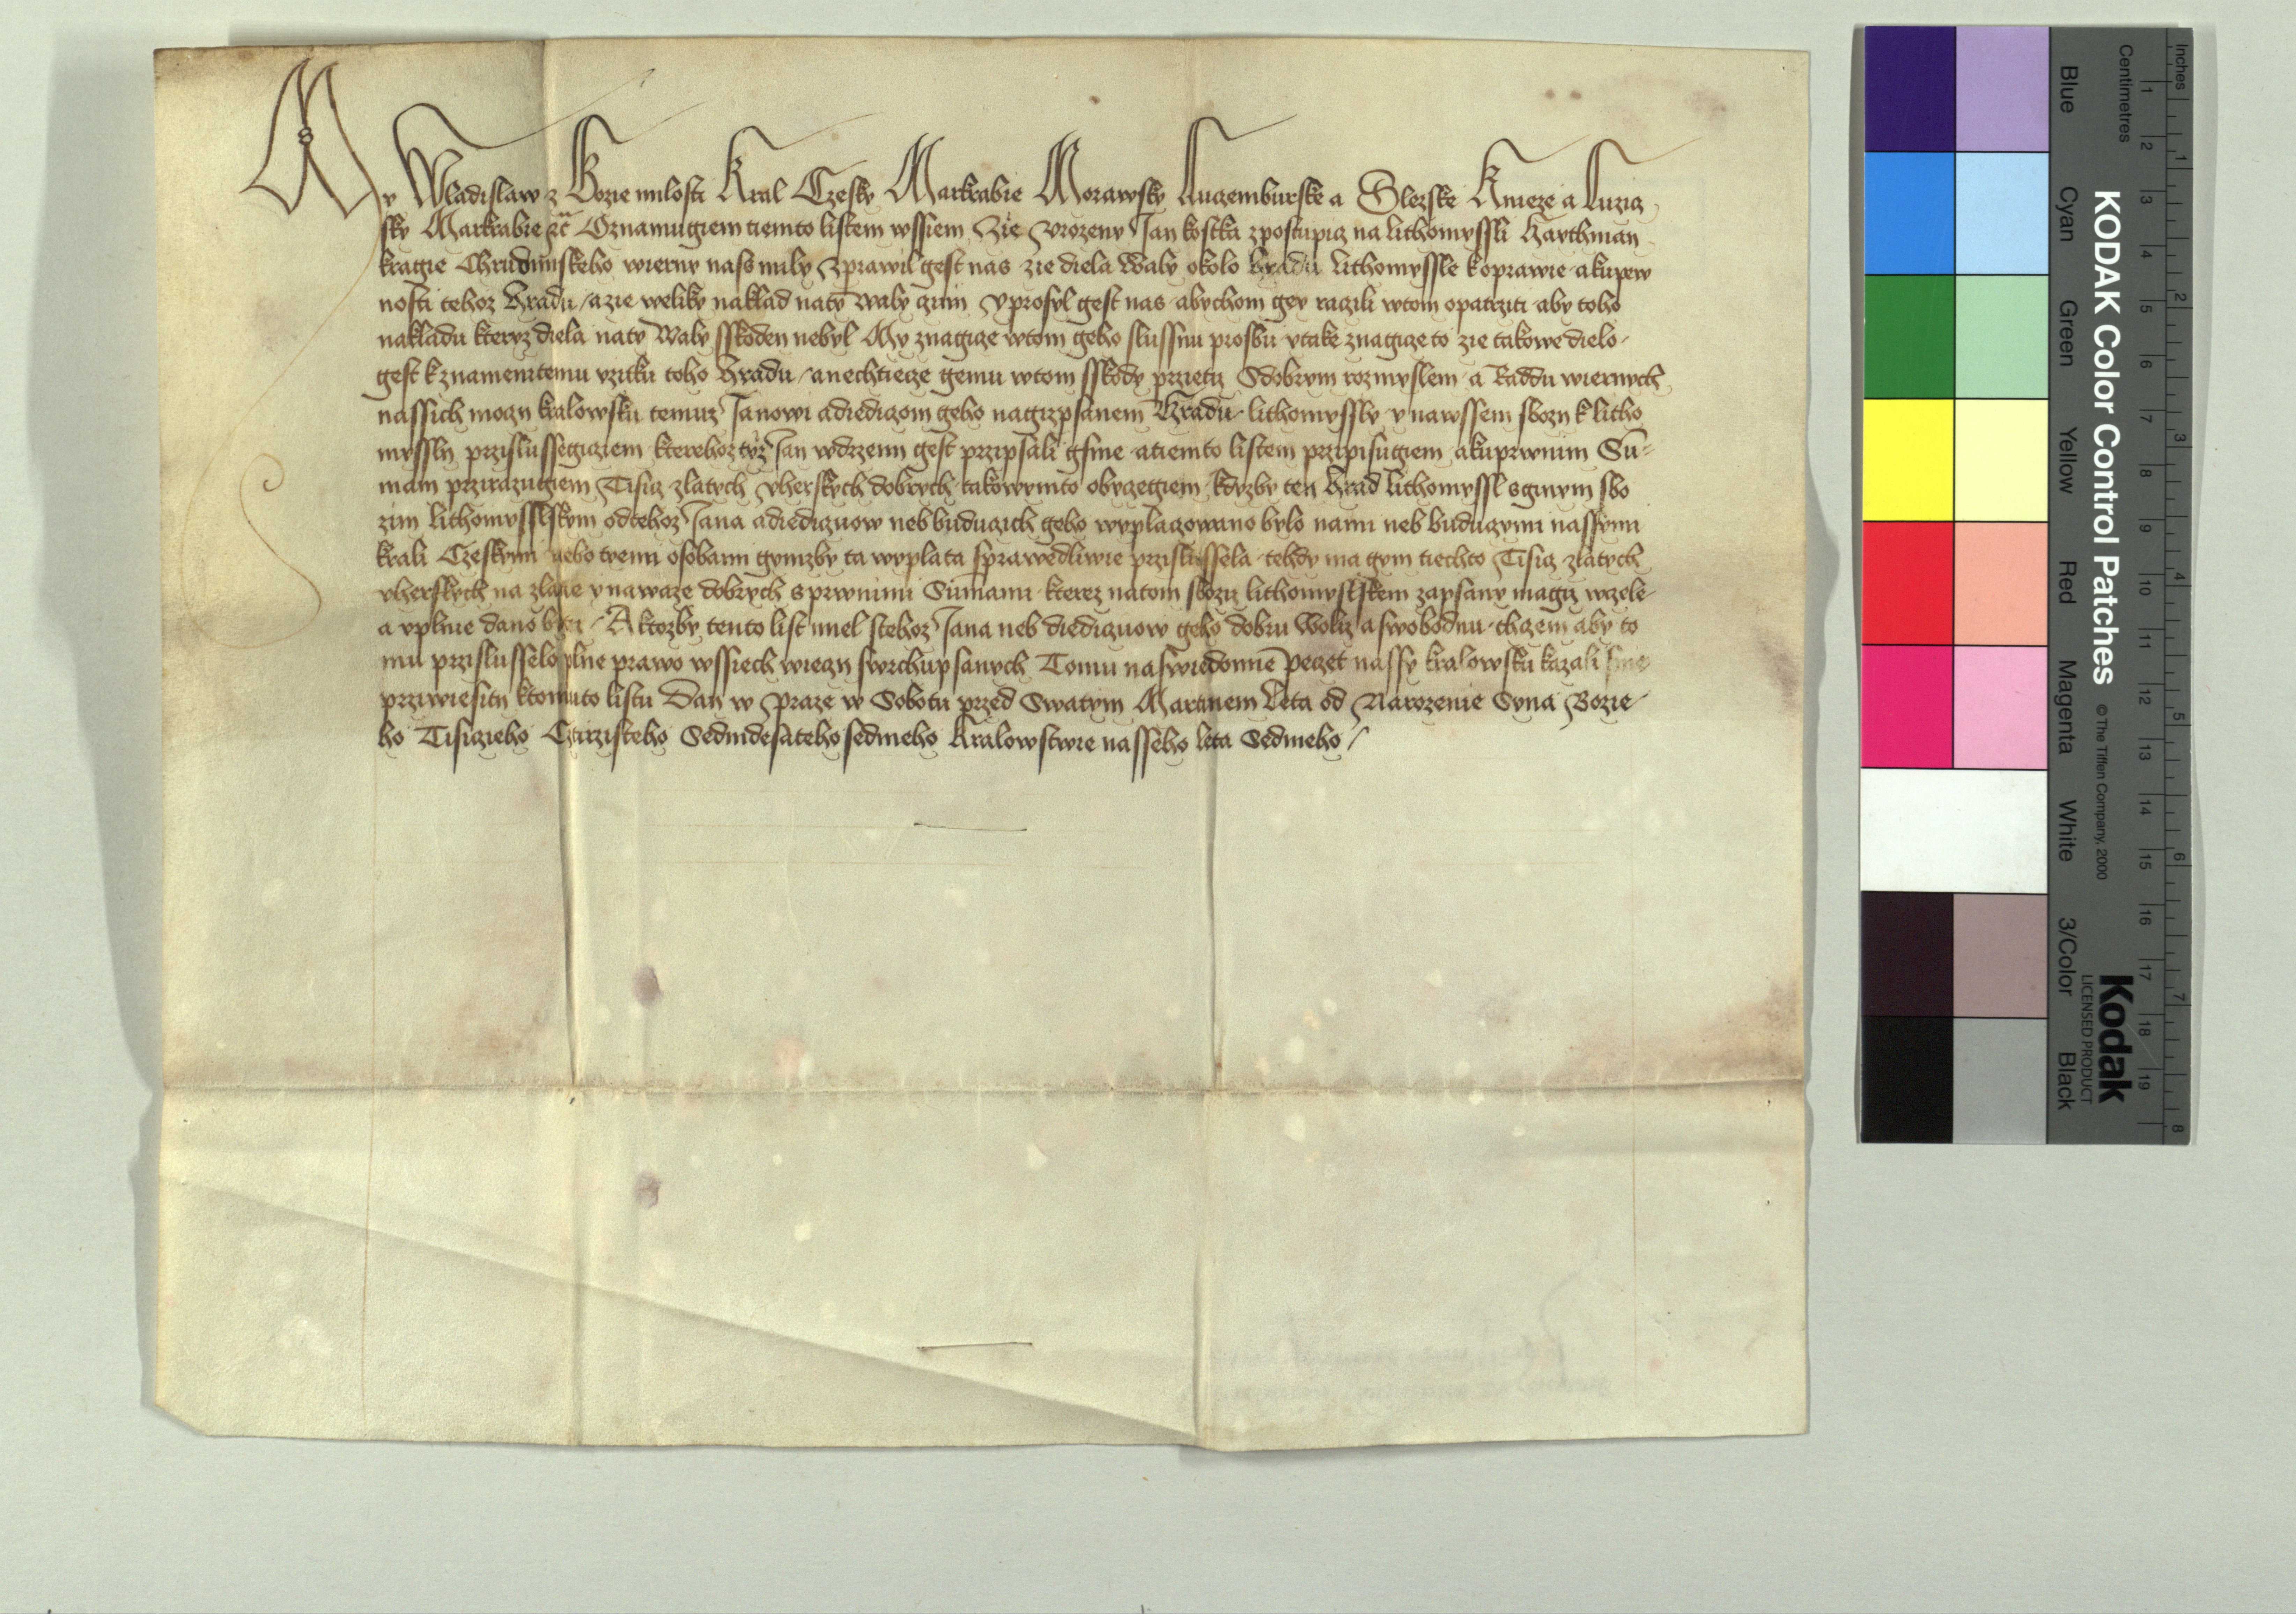 My Wladislaw z Bozie milosti Kral Czesky Markrabie Morawsky Luczemburske a Slezske Knieze a Luzicz
sky Markrabie etc Oznamugiem tiemto listem wssiem Zie Vrozeny Jan kostka zpostupicz na lithomyssli Haythman
kragie Chrudimskeho wierny nass mily Zprawil gest nas zie diela Waly okolo hradu lithomyssle koprawie akupew
nosti tehoz Hradu / azie weliky naklad naty Waly czini Vprosyl gest nas abychom gey raczili wtom opatrziti aby toho
nakladu kteryz diela naty Waly sskoden nebyl My znagicze wtom geho slussnu prosbu ytake znagicze to zie takowe dielo
gest kznamenitemu vzitku toho Hradu / anechtiecze gemu wtom sskody przieti Sdobrym rozmyslem a Raddu wiernych
nassich moczy kralowsku temuz Janowi adiediczom geho nagizpsanem Hradu lithomyssly ynawssem sbozy k litho
myssly przislussegicziem kterehoz tyz Jan wdrzeni gest przipsali gsme atiemto listem przipisugiem akuprwnim Su
mam przirazugiem Tisicz zlatych vherskych dobrych takowymto obyczegiem Kdyzby ten hrad lithomyssl sginym sbo
zim lithomysslskym odtehoz Jana adiediczuow neb buduczich geho wyplaczowano bylo nami neb buduczymi nassymi
krali Czeskymi nebo tiemi osobami gymzby ta wyplata sprawedliwie przislussela tehdy ma gym tiechto Tisicz zlatych
vherskych na zlatie ynawaze dobrych s prwnimi Sumami kterez natom sbozy lithomyslskem zapsany magi wczele
a vplnie dano byti / A ktozby tento list miel stehoz Jana neb diediczuow geho dobru Wolij a swobodnu chczem aby to
mu przislusselo plne prawo wssiech wieczy swrchupsanych Tomu naswiedomie peczet nassy kralowsku kazali sme
przywiesity ktomuto listu Dan w Praze w Sobotu przed Swatym Martinem Leta od Narozenie Syna Bozie
ho Tisiczieho Cztirzisteho Sedmdesateho sedmeho Kralowstwie nasseho leta Sedmeho /
Inches
Centimetres
1 2 3 4 5 6 7 8
1 2 3 4 5 6 7 8 9 10 11 12 13 14 15 16 17 18 19
KODAK Color Control Patches © The Tiffen Company, 2000
Kodak
LICENSED PRODUCT
Blue Cyan Green Yellow Red Magenta White 3/Color Black